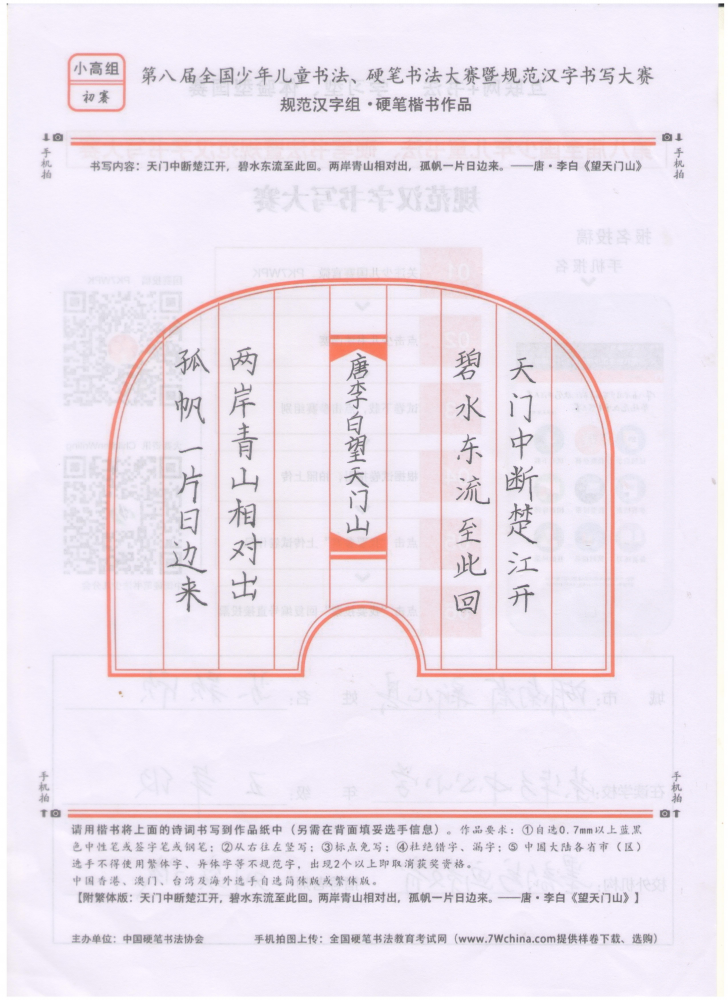 小高组
初赛
第八届全国少年儿童书法、硬笔书法大赛暨规范汉字书写大赛
规范汉字组·硬笔楷书作品
手机拍
手机拍
书写内容：天门中断楚江开，碧水东流至此回。两岸青山相对出，孤帆一片日边来。——唐·李白《望天门山》
天门中断楚江开
碧水东流至此回
唐李白望天门山
两岸青山相对出
孤帆一片日边来
手机拍
手机拍
请用楷书将上面的诗词书写到作品纸中（另需在背面填妥选手信息）。作品要求：①自选0.7mm以上蓝黑
色中性笔或签字笔或钢笔；②从右往左竖写；③标点免写；④杜绝错字、漏字；⑤ 中国大陆各省市（区）
选手不得使用繁体字、异体字等不规范字，出现2个以上即取消获奖资格。
中国香港、澳门、台湾及海外选手自选简体版或繁体版。
【附繁体版：天门中断楚江开，碧水东流至此回。两岸青山相对出，孤帆一片日边来。——唐·李白《望天门山》】
主办单位：中国硬笔书法协会
手机拍图上传：全国硬笔书法教育考试网（www.7Wchina.com提供样卷下载、选购）